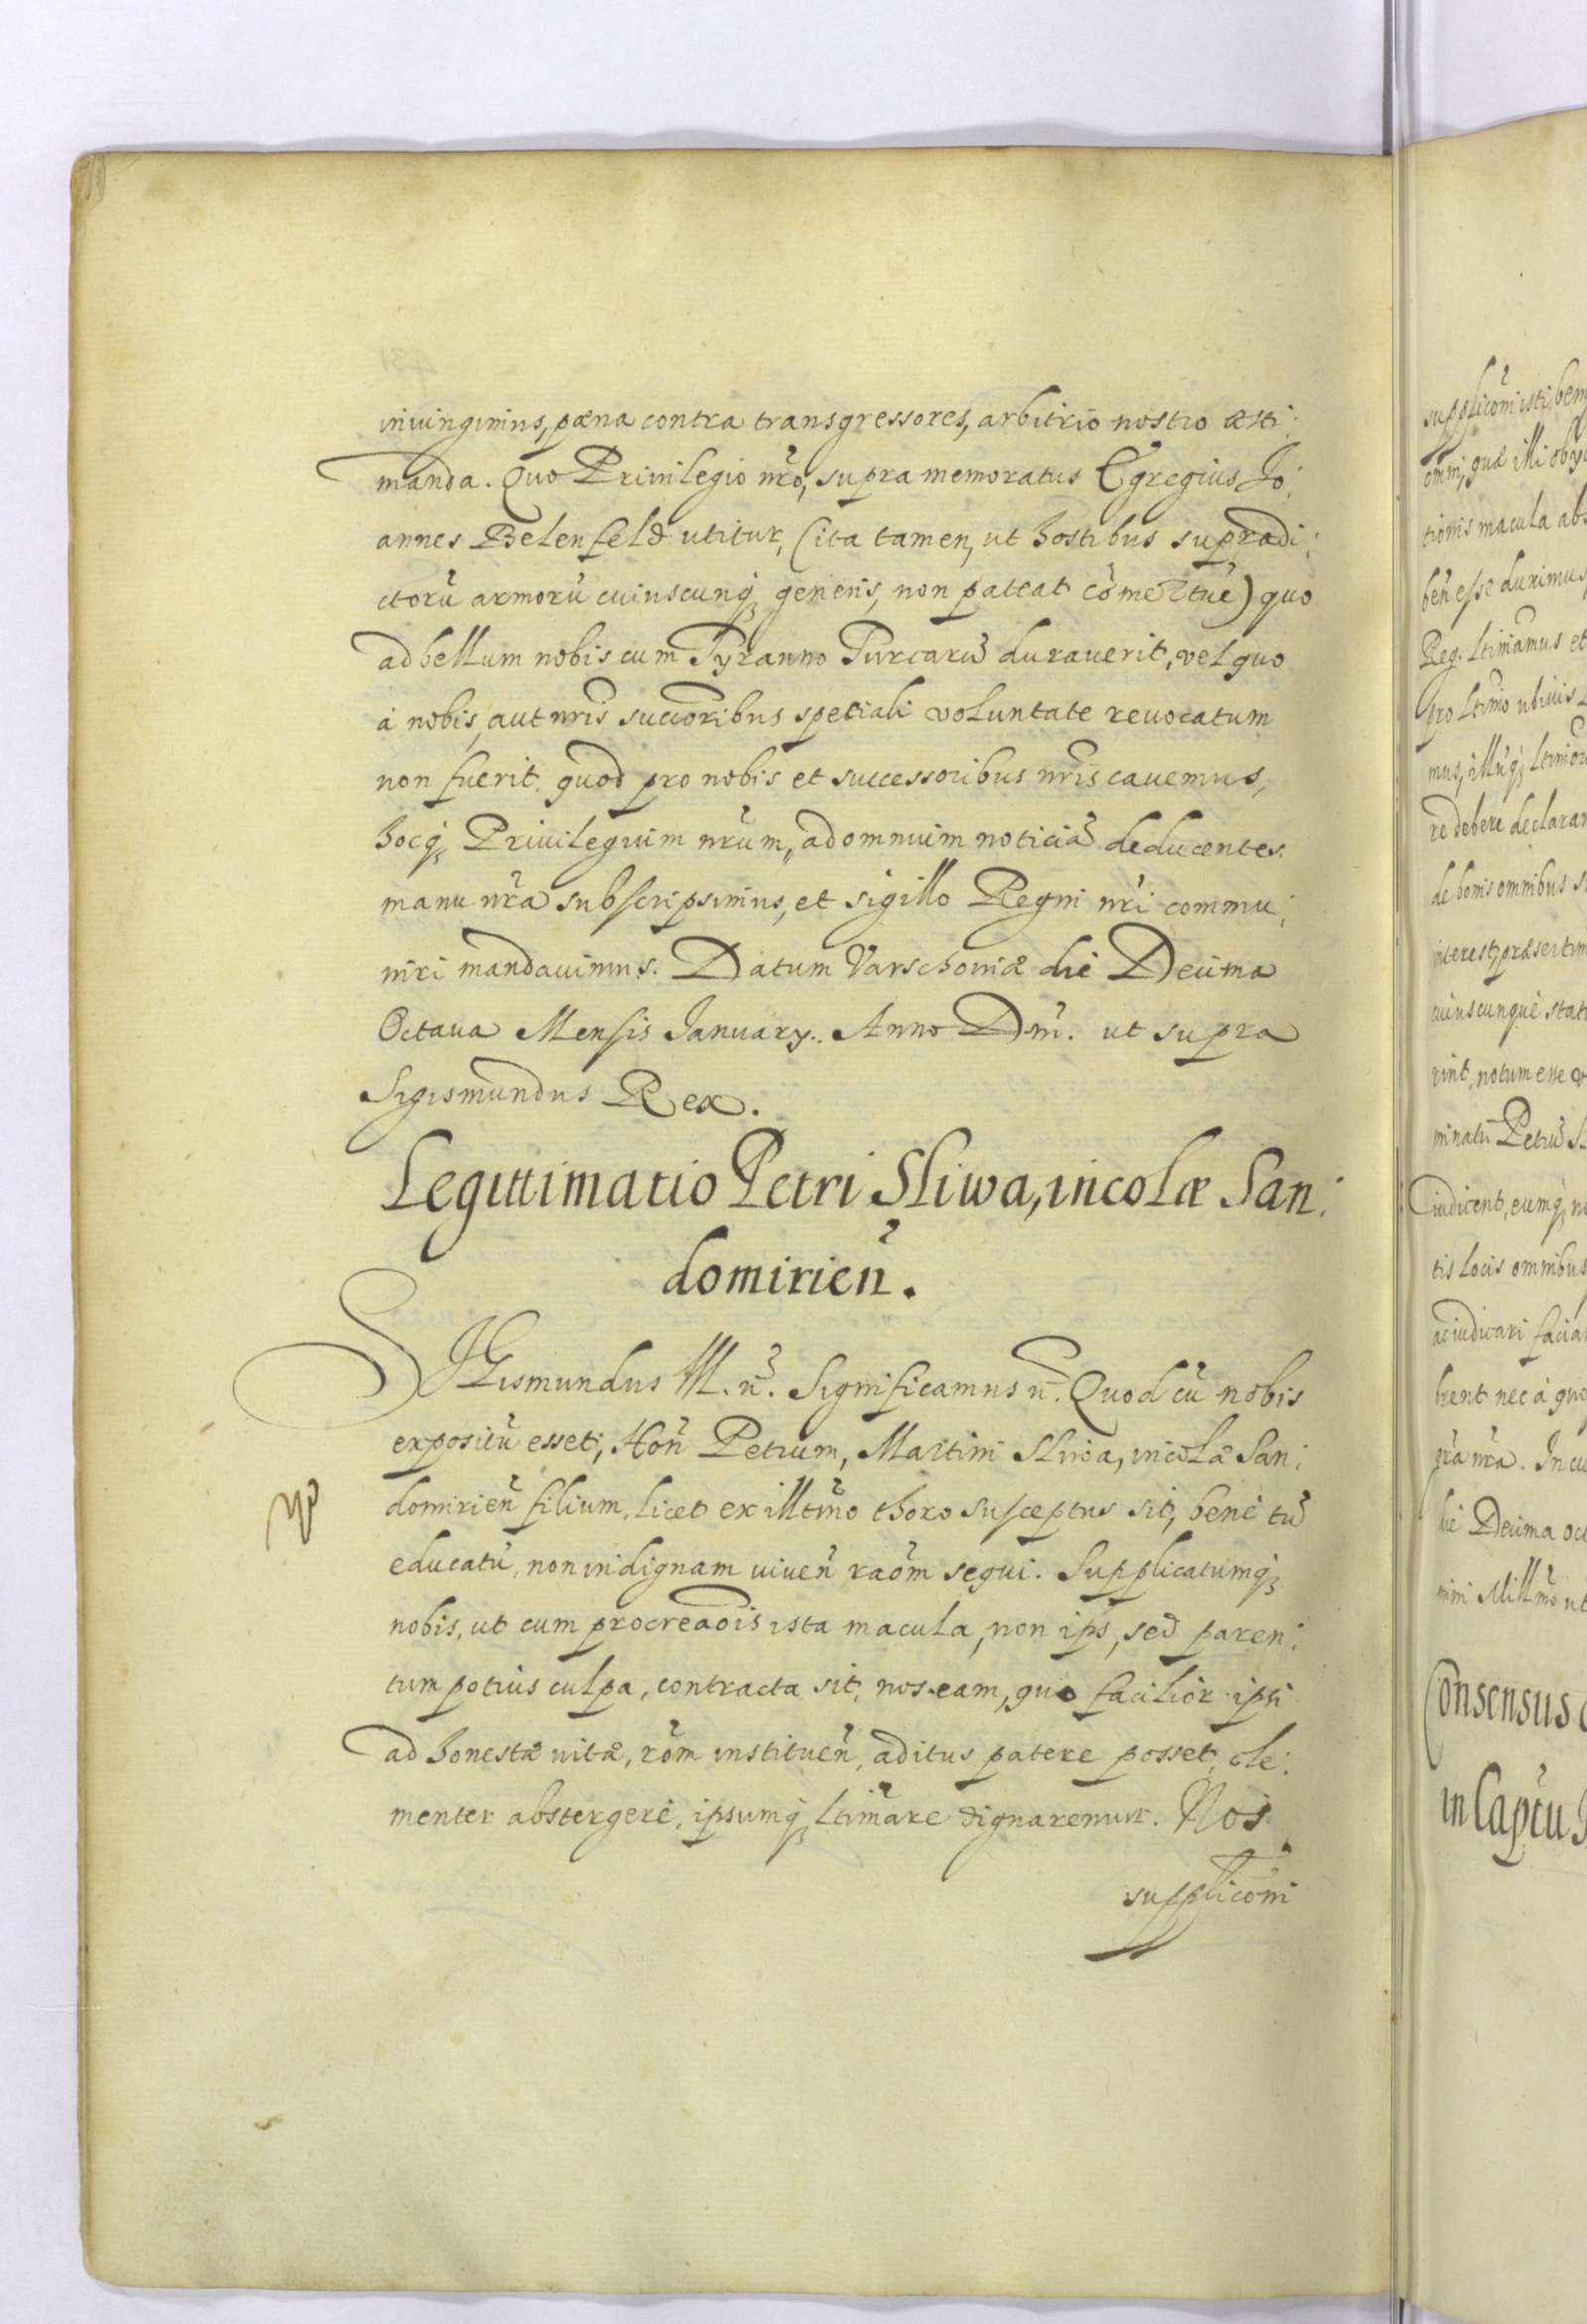 iniungimus, pœna contra transgressores, arbitrio nostro æsti:
manda. Quo Privilegio nr̃o, supra memoratus Egregius Jo:
annes Belenfeld utitur, (ita tamen, ut hostibus supradi:
ctorũ armorũ cuiuscunq; generis, non pateat
ad bellum nobis cum Tyranno Turcarũ durauerit, vel quo
à nobis, aut nr̃is succõribus speciali voluntate reuocatum
non fuerit, quod pro nobis et successoribus nr̃is cauemus,
hocq; Priuilegium nr̃um, ad omnium noticiã deducentes,
manu nr̃a subscripsimus, et sigillo Regni nr̃i commu:
niri mandauimus. Datum Varschoviæ die Decima
Octaua Mensis January. Anno Dñi. ut supra
Sigismundus Rex.
Legittimatio Petri Sliwa, incolæ San:
domirieñ.
SIGismundus III. ñ. Significamus ñ. Quod cũ nobis
expositũ esset, Hoñ Petrum, Martini Sliwa, incolæ San:
domirieñ filium, licet ex illt̃mo thoro susceptus sit, benè tñ
educatũ, non indignam viueñ raõm sequi. Supplicatumq;
nobis, ut cum procreaõis ista macula, non ips, sed paren:
tum potius culpa, contracta sit, nos eam, quo facilior ipsi
ad honestæ vitæ, rõm institueñ, aditus patere posset, cle:
menter abstergere, ipsumq; ltim̃are dignaremur. Nos
supplicõni
supplicõni isti ben
omni, quæ illi oby
tionis macula abs
beñ esse duximus
Reg. ltimamus et
pro ltimo ubiuis
mus, illũq; ltimor
re debere declarar
de bonis omnibus s
interest, præsertim
cuiuscunque stat
rint, notum esse v
minatũ Petrũ S
iudicent, eumq; n
tis locis omnibus
ac iudicari facia
brent nec à quo
gr̃a nr̃a. In cu
die Decima oct
mini Mill̃mo ut
Consensus
in Captu